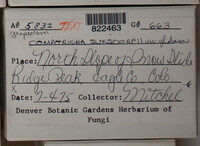 A# 5832 822463 G# 663
COMATRICHA SUKSDORFII
Place: North Slope
Ridge Peak Eagle Co Colo
Date: 7-4-75 Collector: Mitchel
Denver Botanic Gardens Herbarium of
Fungi